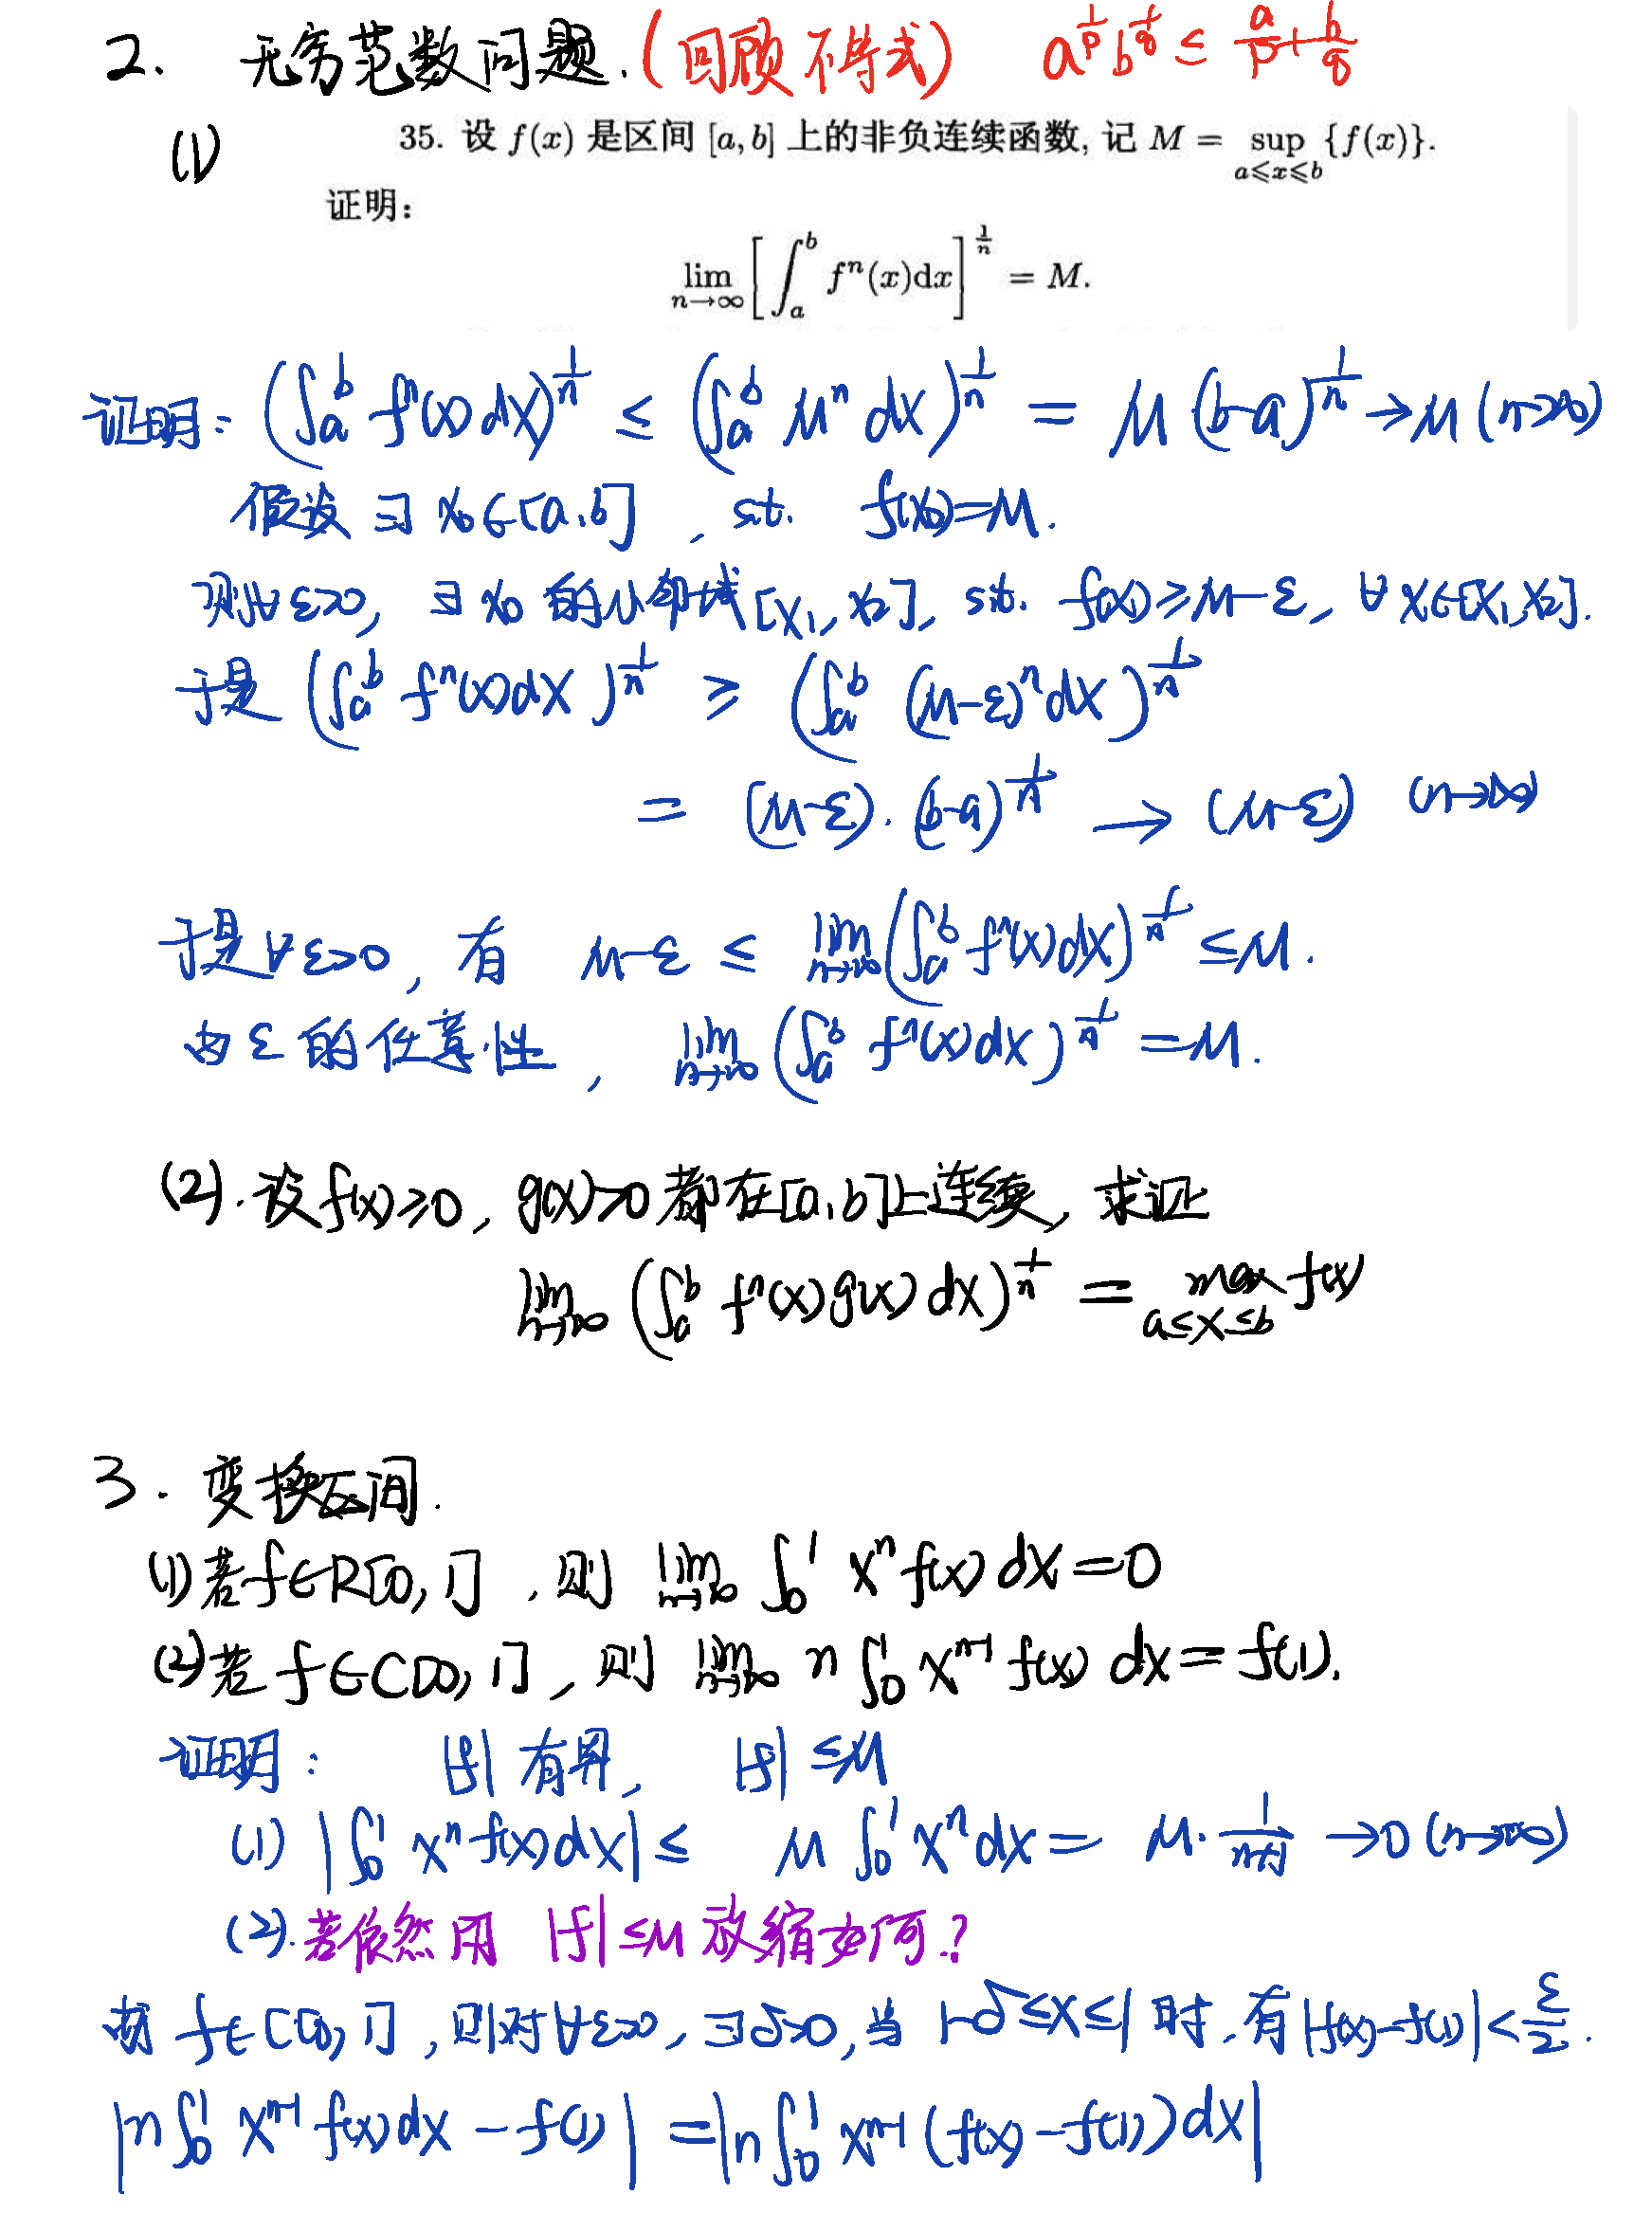 2. 无穷范数问题.(回顾不等式) a^{1/p} b^{1/q} ≤ a/p + b/q
(1) 35. 设 f(x) 是区间 [a, b] 上的非负连续函数, 记 M = sup_{a⩽x⩽b} {f(x)}.
证明:
lim_{n→∞} [∫_a^b f^n(x)dx]^{1/n} = M.
证明: (∫_a^b f^n(x) dx)^{1/n} ≤ (∫_a^b M^n dx)^{1/n} = M (b-a)^{1/n} → M (n→∞)
假设 ∃ x₀∈[a,b], s.t. f(x₀)=M.
则∀ε>0, ∃ x₀ 的小邻域 [x₁, x₂], s.t. f(x)≥M-ε, ∀x∈[x₁,x₂].
于是 (∫_a^b f^n(x)dx)^{1/n} ≥ (∫_a^b (M-ε)^n dx)^{1/n}
= (M-ε)·(b-a)^{1/n} → (M-ε) (n→∞)
于是∀ε>0, 有 M-ε ≤ lim_{n→∞} (∫_a^b f^n(x)dx)^{1/n} ≤ M.
由 ε 的任意性, lim_{n→∞} (∫_a^b f^n(x)dx)^{1/n} = M.
(2). 设 f(x)≥0, g(x)>0 都在[a,b]上连续, 求证
lim_{n→∞} (∫_a^b f^n(x)g(x) dx)^{1/n} = max_{a≤x≤b} f(x)
3. 变换区间.
(1) 若 f∈R[0,1], 则 lim_{n→∞} ∫_0^1 x^n f(x) dx = 0
(2) 若 f∈C[0,1], 则 lim_{n→∞} n ∫_0^1 x^{n-1} f(x) dx = f(1).
证明: |f| 有界, |f| ≤ M
(1) |∫_0^1 x^n f(x)dx| ≤ M ∫_0^1 x^n dx = M·1/(n+1) → 0 (n→∞)
(2). 若依然用 |f| ≤ M 放缩如何?
f∈C[0,1], 则对∀ε>0, ∃δ>0, 当 1-δ≤x≤1 时, 有|f(x)-f(1)| < ε/2.
|n∫_0^1 x^{n-1} f(x)dx - f(1)| = |n∫_0^1 x^{n-1} (f(x)-f(1))dx|